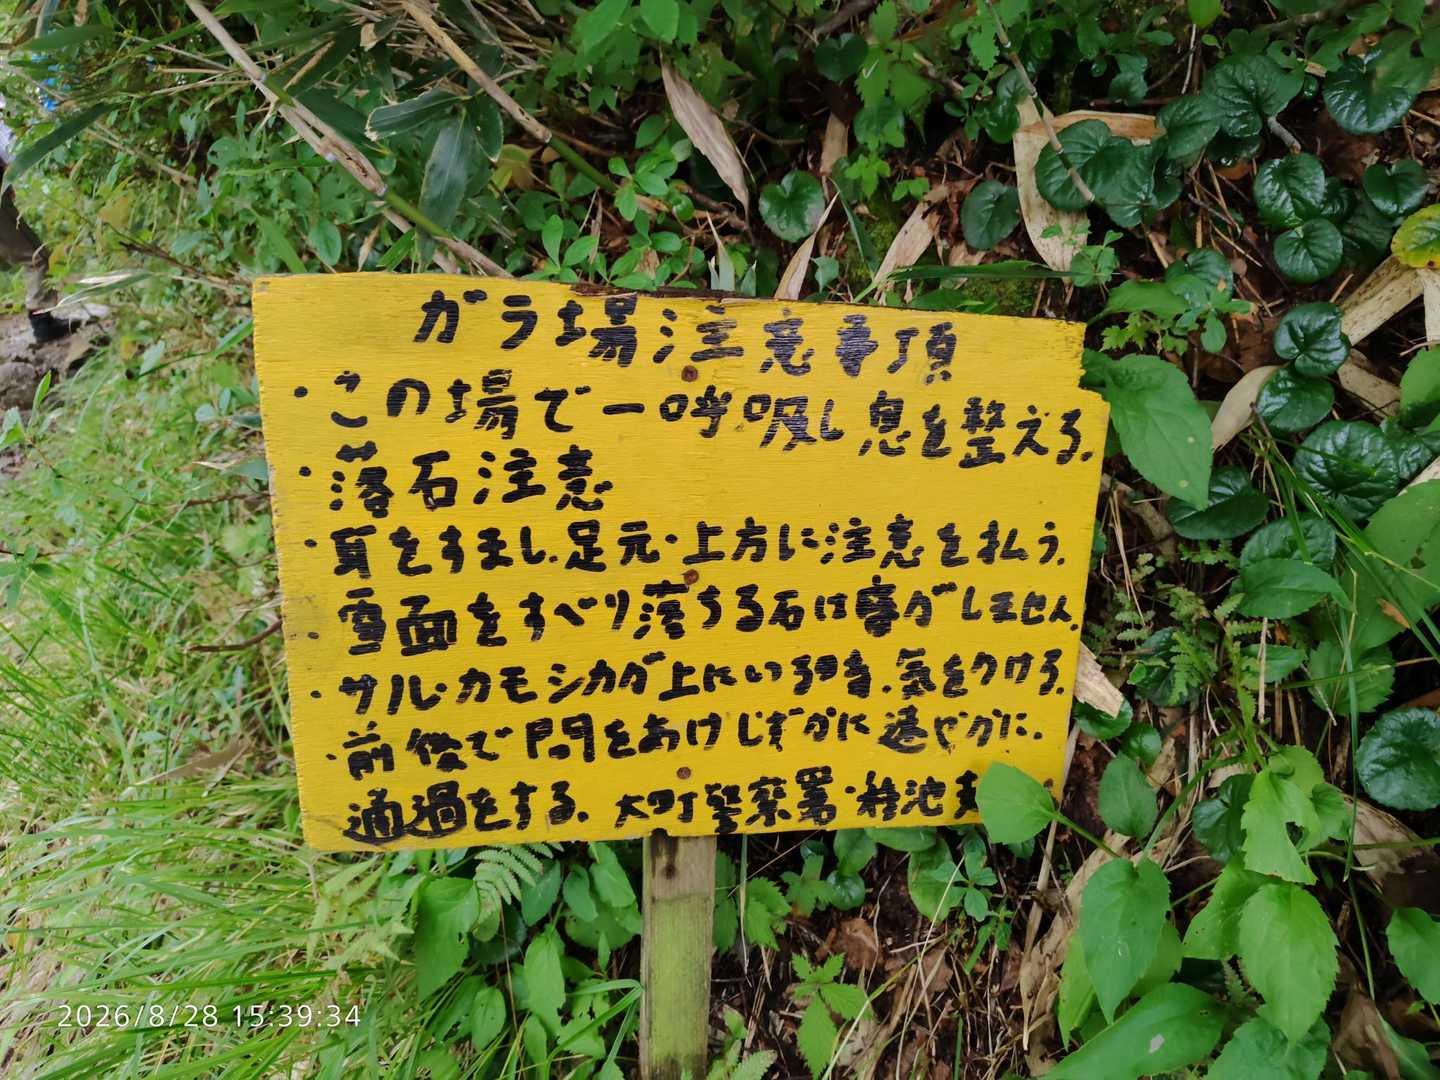 ガラ場注意事項
・この場で一呼吸し息を整える。
・落石注意
・耳をすまし.足元・上方に注意を払う.
・雪面をすべり落ちる石は音がしません。
・サル・カモシカが上にいる時.気をつける.
・前後で間をあけしずかに速やかに.
通過をする. 大町警察署・栂池
2026/8/28 15:39:34